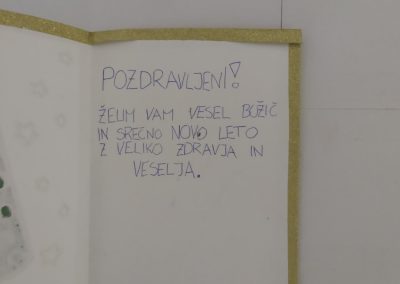 POZDRAVLJENI!
ŽELIM VAM VESEL BOŽIČ
IN SREČNO NOVO LETO
Z VELIKO ZDRAVJA IN
VESELJA.